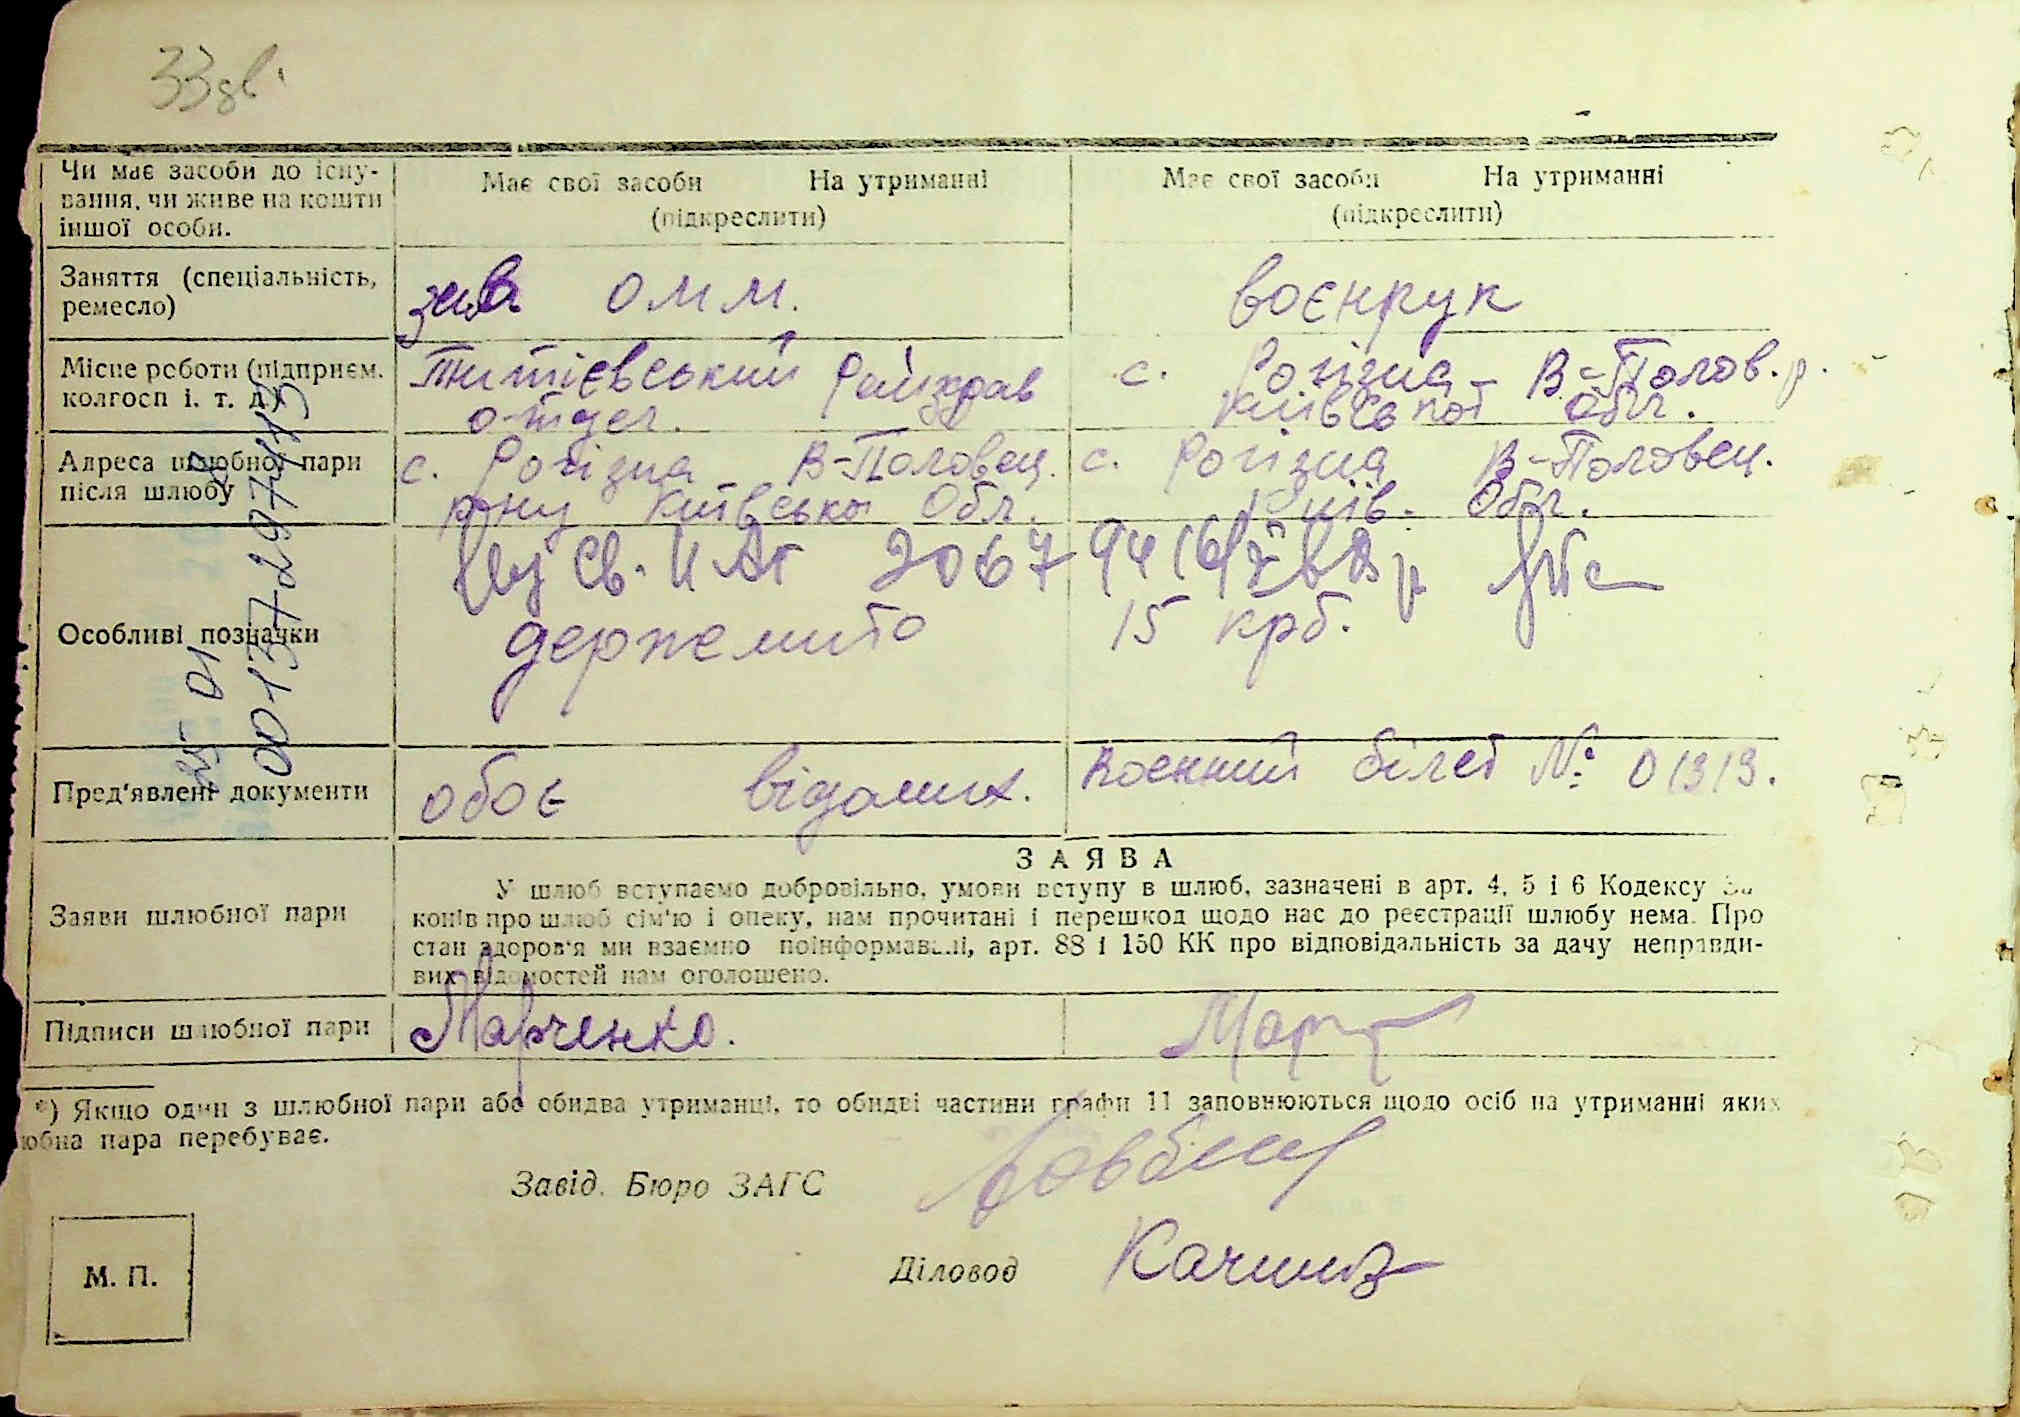 33 зв.
Чи має засоби до існу-
вання, чи живе на кошти
іншої особи.
Має свої засоби На утриманні
(підкреслити)
Має свої засоби На утриманні
(підкреслити)
Заняття (спеціальність,
ремесло)
зав. омм.
воєнрук
Місце роботи (підприєм.
колгосп і. т. д.)
Титієвський Райздрав
отдел.
с. Рогізна В-Полов. р.
Київської обл.
Адреса шлюбної пари
після шлюбу
с. Рогізна В-Половец.
р-ну Київсько Обл.
с. Рогізна В-Половец.
Київ. Обл.
Особливі позначки
Св. 2067
держмито 15 крб.
00137297443
Пред'явлені документи
обоє відомих.
Военний білет № 01313.
Заяви шлюбної пари
ЗАЯВА
У шлюб вступаємо добровільно, умови вступу в шлюб, зазначені в арт. 4, 5 і 6 Кодексу За-
конів про шлюб сім'ю і опеку, нам прочитані і перешкод щодо нас до реєстрації шлюбу нема. Про
стан здоров'я ми взаємно поінформавалі, арт. 88 і 150 КК про відповідальність за дачу неправди-
вих відомостей нам оголошено.
Підписи шлюбної пари
Марченко.
*) Якщо один з шлюбної пари або обидва утриманці, то обидві частини графи 11 заповнюються щодо осіб на утриманні яких
юбна пара перебуває.
Завід. Бюро ЗАГС
Діловод
М. П.